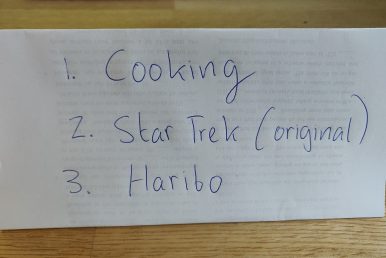 1. Cooking
2. Star Trek (original)
3. Haribo